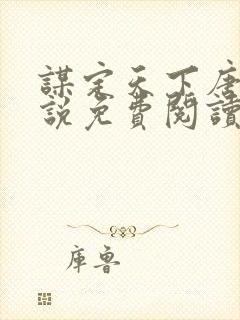 謀定天下唐
說免費閱讀
庫魯